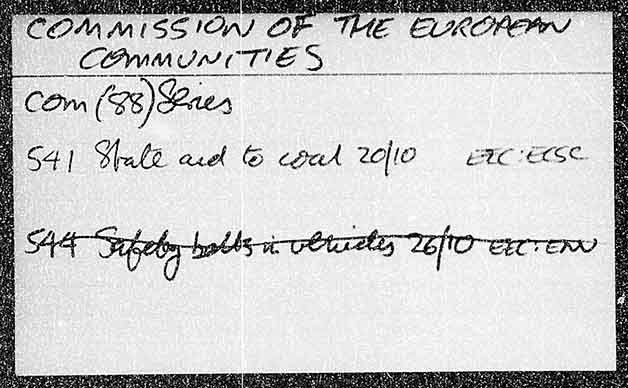 COMMISSION OF THE EUROPEAN
COMMUNITIES
COM (88) Series
541 State aid to coal 20/10 EEC:ECSC
544 Safety belts in vehicles 26/10 EEC:ENV